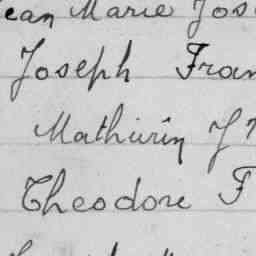 ean Marie Jos
Joseph Fran
Mathurin J
Theodore F